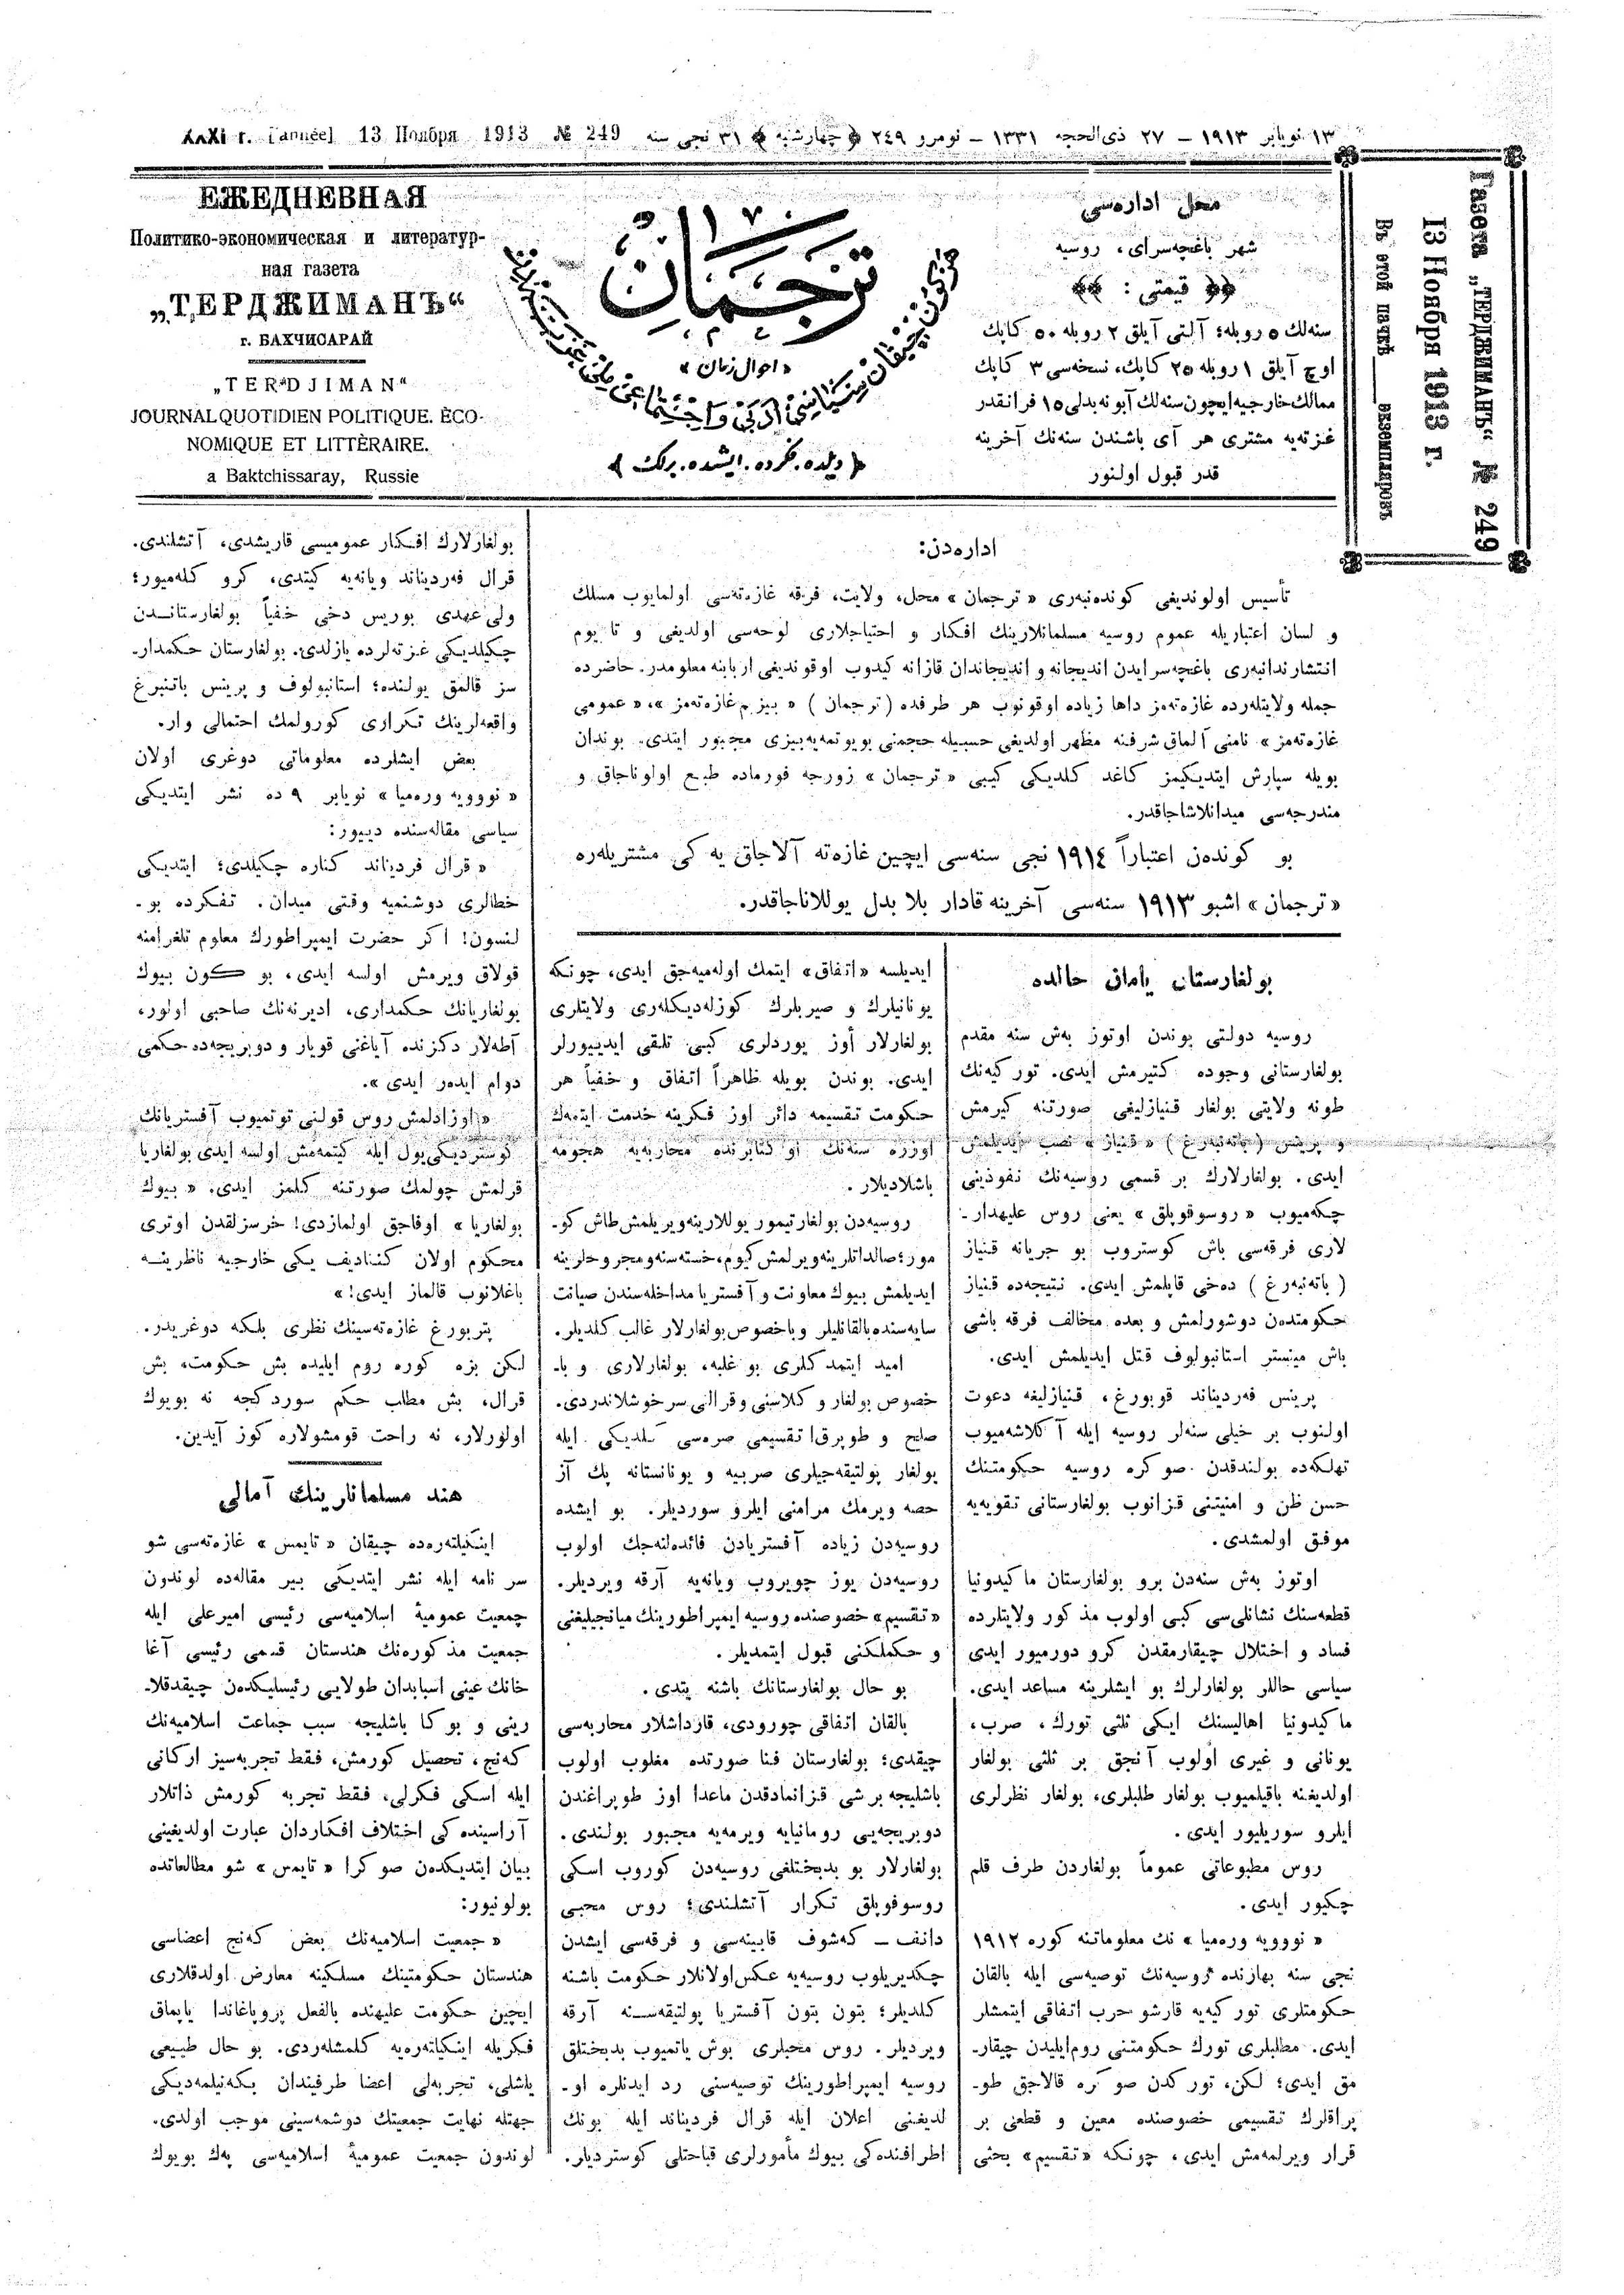 XXXI г. [année] 13 Ноября 1913 № 249
١٣ نويابر ١٩١٣ – ٢٧ ذى الحجه ١٣٣١ – نومرو ٢٤٩ ﴿ چهارشنبه ﴾ ٣١ نجى سنه
ЕЖЕДНЕВНАЯ
Политико-экономическая и литератур-
ная газета
„ТЕРДЖИМАНЪ“
г. БАХЧИСАРАЙ
„TERDJIMAN“
JOURNAL QUOTIDIEN POLITIQUE. ÈCO-
NOMIQUE ET LITTÈRAIRE.
a Baktchissaray, Russie
ترجمان
« احوال زمان »
﴿ ديلده، فكرده، ايشده، برلك ﴾
محل اداره‌سى
شهر باغچه‌سراى، روسيه
﴿﴿ قيمتى : ﴾﴾
سنه‌لك ٥ روبله؛ آلتى آيلق ٢ روبله ٥٠ كاپك
اوچ آيلق ١ روبله ٢٥ كاپك، نسخه‌سى ٣ كاپك
ممالك خارجيه ايچون سنه‌لك آبونه بدلى ١٥ فرانقدر
غزته‌يه مشترى هر آى باشندن سنه‌نك آخرينه
قدر قبول اولنور
Газета „ТЕРДЖИМАНЪ“ № 249
13 Ноября 1913 г.
Въ этой пачкѣ ___ экземпляровъ
اداره‌دن:
تأسيس اولونديغى كونده‌نبه‌رى « ترجمان » محل، ولايت، فرقه غازه‌ته‌سى اولمايوب مسلك
و لسان اعتباريله عموم روسيه مسلمانلارينك افكار و احتياجلارى لوحه‌سى اولديغى و تا بيوم
انتشارندانبه‌رى باغچه‌سرايدن انديجانه و انديجاندان قازانه كيدوب اوقونديغى اربابنه معلومدر. حاضرده
جمله ولايتله‌رده غازه‌ته‌مز داها زياده اوقونوب هر طرفده ( ترجمان ) « بيزم غازه‌ته‌مز »، « عمومى
غازه‌ته‌مز » نامنى آلماق شرفنه مظهر اولديغى حسبيله حجمنى بويوتمه‌يه بيزى مجبور ايتدى. بوندان
بويله سپارش ايتديكيمز كاغد كلديكى كيبى « ترجمان » زورجه فورماده طبع اولوناجاق و
مندرجه‌سى ميدانلاشاجاقدر.
بو كونده‌ن اعتباراً ١٩١٤ نجى سنه‌سى ايچين غازه‌ته آلاجاق يه كى مشتريله‌ره
« ترجمان » اشبو ١٩١٣ سنه‌سى آخرينه قادار بلا بدل يوللاناجاقدر.
بولغارستان يامان حالده
روسيه دولتى بوندن اوتوز به‌ش سنه مقدم
بولغارستانى وجوده كتيرمش ايدى. توركيه‌نك
طونه ولايتى بولغار قنيازليغى صورتنه كيرمش
و پرينس ( باته‌نبه‌رغ ) « قنياز » نصب ايديلمش
ايدى. بولغارلارك بر قسمى روسيه‌نك نفوذينى
چكه‌ميوب « روسوفوبلق » يعنى روس عليهدار-
لارى فرقه‌سى باش كوستروب بو جريانه قنياز
( باته‌نبه‌رغ ) ده‌خى قاپلمش ايدى. نتيجه‌ده قنياز
حكومتدن دوشورلمش و بعده مخالف فرقه باشى
باش مينستر استانبولوف قتل ايديلمش ايدى.
پرينس فه‌رديناند قوبورغ، قنيازليغه دعوت
اولنوب بر خيلى سنه‌لر روسيه ايله آكلاشه‌ميوب
تهلكه‌ده بولندقدن صوكره روسيه حكومتنك
حسن ظن و امنيتنى قزانوب بولغارستانى تقويه‌يه
موفق اولمشدى.
اوتوز به‌ش سنه‌دن برو بولغارستان ماكيدونيا
قطعه‌سنك نشانلى‌سى كبى اولوب مذكور ولايتلرده
فساد و اختلال چيقارمقدن كرو دورميور ايدى
سياسى حاللر بولغارلرك بو ايشلرينه مساعد ايدى.
ماكيدونيا اهاليسنك ايكى ثلثى تورك، صرب،
يونانى و غيرى اولوب آنجق بر ثلثى بولغار
اولديغنه باقيلميوب بولغار طلبلرى، بولغار نظرلرى
ايلرو سوريليور ايدى.
روس مطبوعاتى عموماً بولغاردن طرف قلم
چكيور ايدى.
« نوويه وره‌ميا » نك معلوماتنه كوره ١٩١٢
نجى سنه بهارنده روسيه‌نك توصيه‌سى ايله بالقان
حكومتلرى توركيه‌يه قارشو حرب اتفاقى ايتمشلر
ايدى. مطلبلرى تورك حكومتنى روم‌ايليدن چيقار-
مق ايدى؛ لكن، توركدن صوكره قالاجق طو-
پراقلرك تقسيمى خصوصنده معين و قطعى بر
قرار ويرلمه‌مش ايدى، چونكه « تقسيم » بحثى
ايديلسه « اتفاق » ايتمك اوله‌ميه‌جق ايدى، چونكه
يونانيلرك و صربلرك كوزله‌ديكله‌رى ولايتلرى
بولغارلار أوز يوردلرى كبى تلقى ايدييورلر
ايدى. بوندن بويله ظاهراً اتفاق و خفياً هر
حكومت تقسيمه دائر اوز فكرينه خدمت ايتمه‌ك
اوزره سنه‌نك اوكتابرنده محاربه‌يه هجومه
باشلاديلار.
روسيه‌دن بولغار تيمور يوللارينه ويريلمش طاش كو-
مور؛ صالداتلرينه ويرلمش كيوم، خسته‌سنه و مجروحلرينه
ايديلمش بيوك معاونت و آفستريا مداخله‌سندن صيانت
سايه‌سنده بالقانليلر و باخصوص بولغارلار غالب كلديلر.
اميد ايتمدكلرى بو غلبه، بولغارلارى و با-
خصوص بولغار و كلاسنى و قرالنى سرخوشلاندردى.
صلح و طوپرق‌ا تقسيمى صره‌سى كلديكى ايله
بولغار پولتيقه‌جيلرى صربيه و يونانستانه پك آز
حصه ويرمك مرامنى ايلرو سورديلر. بو ايشده
روسيه‌دن زياده آفسترياد‌ن فائده‌لنه‌جك اولوب
روسيه‌دن يوز چويروب ويانه‌يه آرقه ويرديلر.
« تقسيم » خصوصنده روسيه ايمپراطورينك ميانجيليغنى
و حكملكنى قبول ايتمديلر.
بو حال بولغارستانك باشنه يتدى.
بالقان اتفاقى چورودى، قارداشلار محاربه‌سى
چيقدى؛ بولغارستان فنا صورتده مغلوب اولوب
باشليجه برشى قزانمادقدن ماعدا اوز طوپراغندن
دوبريجه‌يى رومانيايه ويرمه‌يه مجبور بولندى.
بولغارلار بو بدبختلغى روسيه‌دن كوروب اسكى
روسوفوبلق تكرار آتشلندى؛ روس محبى
دانف – كه‌شوف قابينه‌سى و فرقه‌سى ايشدن
چكديريلوب روسيه‌يه عكس اولانلار حكومت باشنه
كلديلر؛ بتون بتون آفستريا پولتيقه‌سـنه آرقه
ويرديلر. روس محبلرى بوش ياتميوب بدبختلق
روسيه ايمپراطورينك توصيه‌سنى رد ايدنلره او-
لديغينى اعلان ايله قرال فرديناند ايله بونك
اطرافنده‌كى بيوك مأمورلرى قباحتلى كوسترديلر.
بولغارلارك افكار عموميسى قاريشدى، آتشلندى.
قرال فه‌رديناند ويانه‌يه كيتدى، كرو كله‌ميور؛
ولى عهدى بوريس دخى خفياً بولغارستانـدن
چكيلديكى غزته‌لرده يازلدى. بولغارستان حكمدار-
سز قالمق يولنده؛ استانبولوف و پرينس باتنبرغ
واقعه‌لرينك تكرارى كورولمك احتمالى وار.
بعض ايشلرده معلوماتى دوغرى اولان
« نوويه وره‌ميا » نويابر ٩ ده نشر ايتديكى
سياسى مقاله‌سنده دييور:
« قرال فرديناند كناره چكيلدى؛ ايتديكى
خطالرى دوشنميه وقتى ميدان. تفكرده بو-
لنسون! اكر حضرت ايمپراطورك معلوم تلغرامنه
قولاق ويرمش اولسه ايدى، بو كون بيوك
بولغاريانك حكمدارى، اديرنه‌نك صاحبى اولور،
آطه‌لار دكزنده آياغنى قويار و دوبريجه‌ده حكمى
دوام ايده‌ر ايدى ».
« اوزادلمش روس قولنى توتميوب آفستريانك
كوسترديكى يول ايله كيتمه‌مش اولسه ايدى بولغاريا
قرلمش چولمك صورتنه كلمز ايدى. « بيوك
بولغاريا » اوفاجق اولمازدى! خرسزلقدن اوترى
محكوم اولان كناديف يكى خارجيه ناظرينـه
باغلانوب قالماز ايدى! »
پتربورغ غازه‌ته‌سينك نظرى بلكه دوغريدر.
لكن بزه كوره روم ايليده بش حكومت، بش
قرال، بش مطلب حكم سوردكجه نه بويوك
اولورلار، نه راحت قومشولاره كوز آيدين.
هند مسلمانارينك آمالى
اينكيلته‌ره‌ده چيقان « تايمس » غازه‌ته‌سى شو
سر نامه ايله نشر ايتديكى بير مقاله‌ده لوندون
جمعيت عموميهٔ اسلاميه‌سى رئيسى امير على ايله
جمعيت مذكوره‌نك هندستان قسمى رئيسى آغا
خانك عينى اسبابدان طولايى رئيسليكده‌ن چيقدقلا-
رينى و بوكا باشليجه سبب جماعت اسلاميه‌نك
كه‌نج، تحصيل كورمش، فقط تجربه‌سيز اركانى
ايله اسكى فكرلى، فقط تجربه كورمش ذاتلار
آراسينده كى اختلاف افكاردان عبارت اولديغينى
بيان ايتديكده‌ن صوكرا « تايمس » شو مطالعاتده
بولونيور:
« جمعيت اسلاميه‌نك بعض كه‌نج اعضاسى
هندستان حكومتينك مسلكينه معارض اولدقلارى
ايچين حكومت عليهنده بالفعل پروپاغاندا ياپماق
فكريله اينكيلته‌ره‌يه كلمشله‌ردى. بو حال طبيعى
ياشلى، تجربه‌لى اعضا طرفيندان بكه‌نيلمه‌ديكى
جهتله نهايت جمعيتك دوشمه‌سينى موجب اولدى.
لوندون جمعيت عموميهٔ اسلاميه‌سى په‌ك بويوك